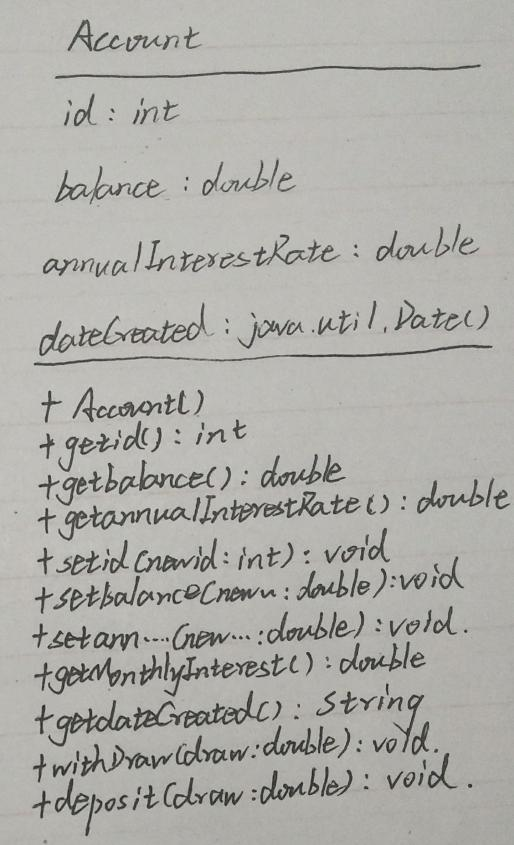 Account
id : int
balance : double
annualInterestRate : double
dateCreated : java.util.Date()
+ Account()
+getid() : int
+getbalance() : double
+getannualInterestRate() : double
+setid(newid : int) : void
+setbalance(newn : double) : void
+setann....(new... : double) : void.
+getMonthlyInterest() : double
+getdateCreated() : String
+withDraw(draw : double) : void.
+deposit(draw : double) : void.